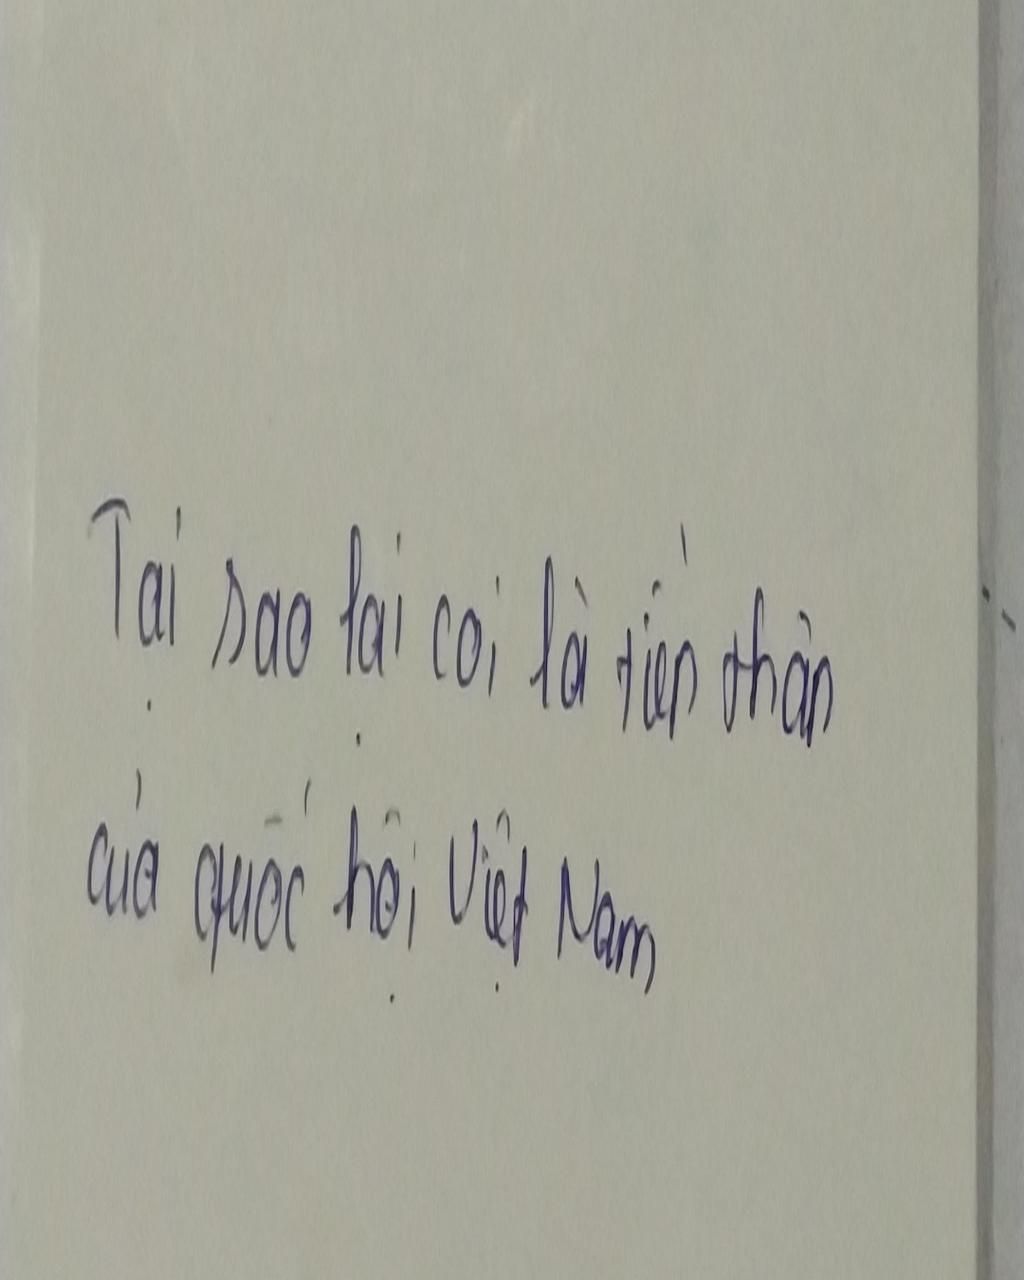 Tại sao lại coi là tiền thân
của quốc hội Việt Nam